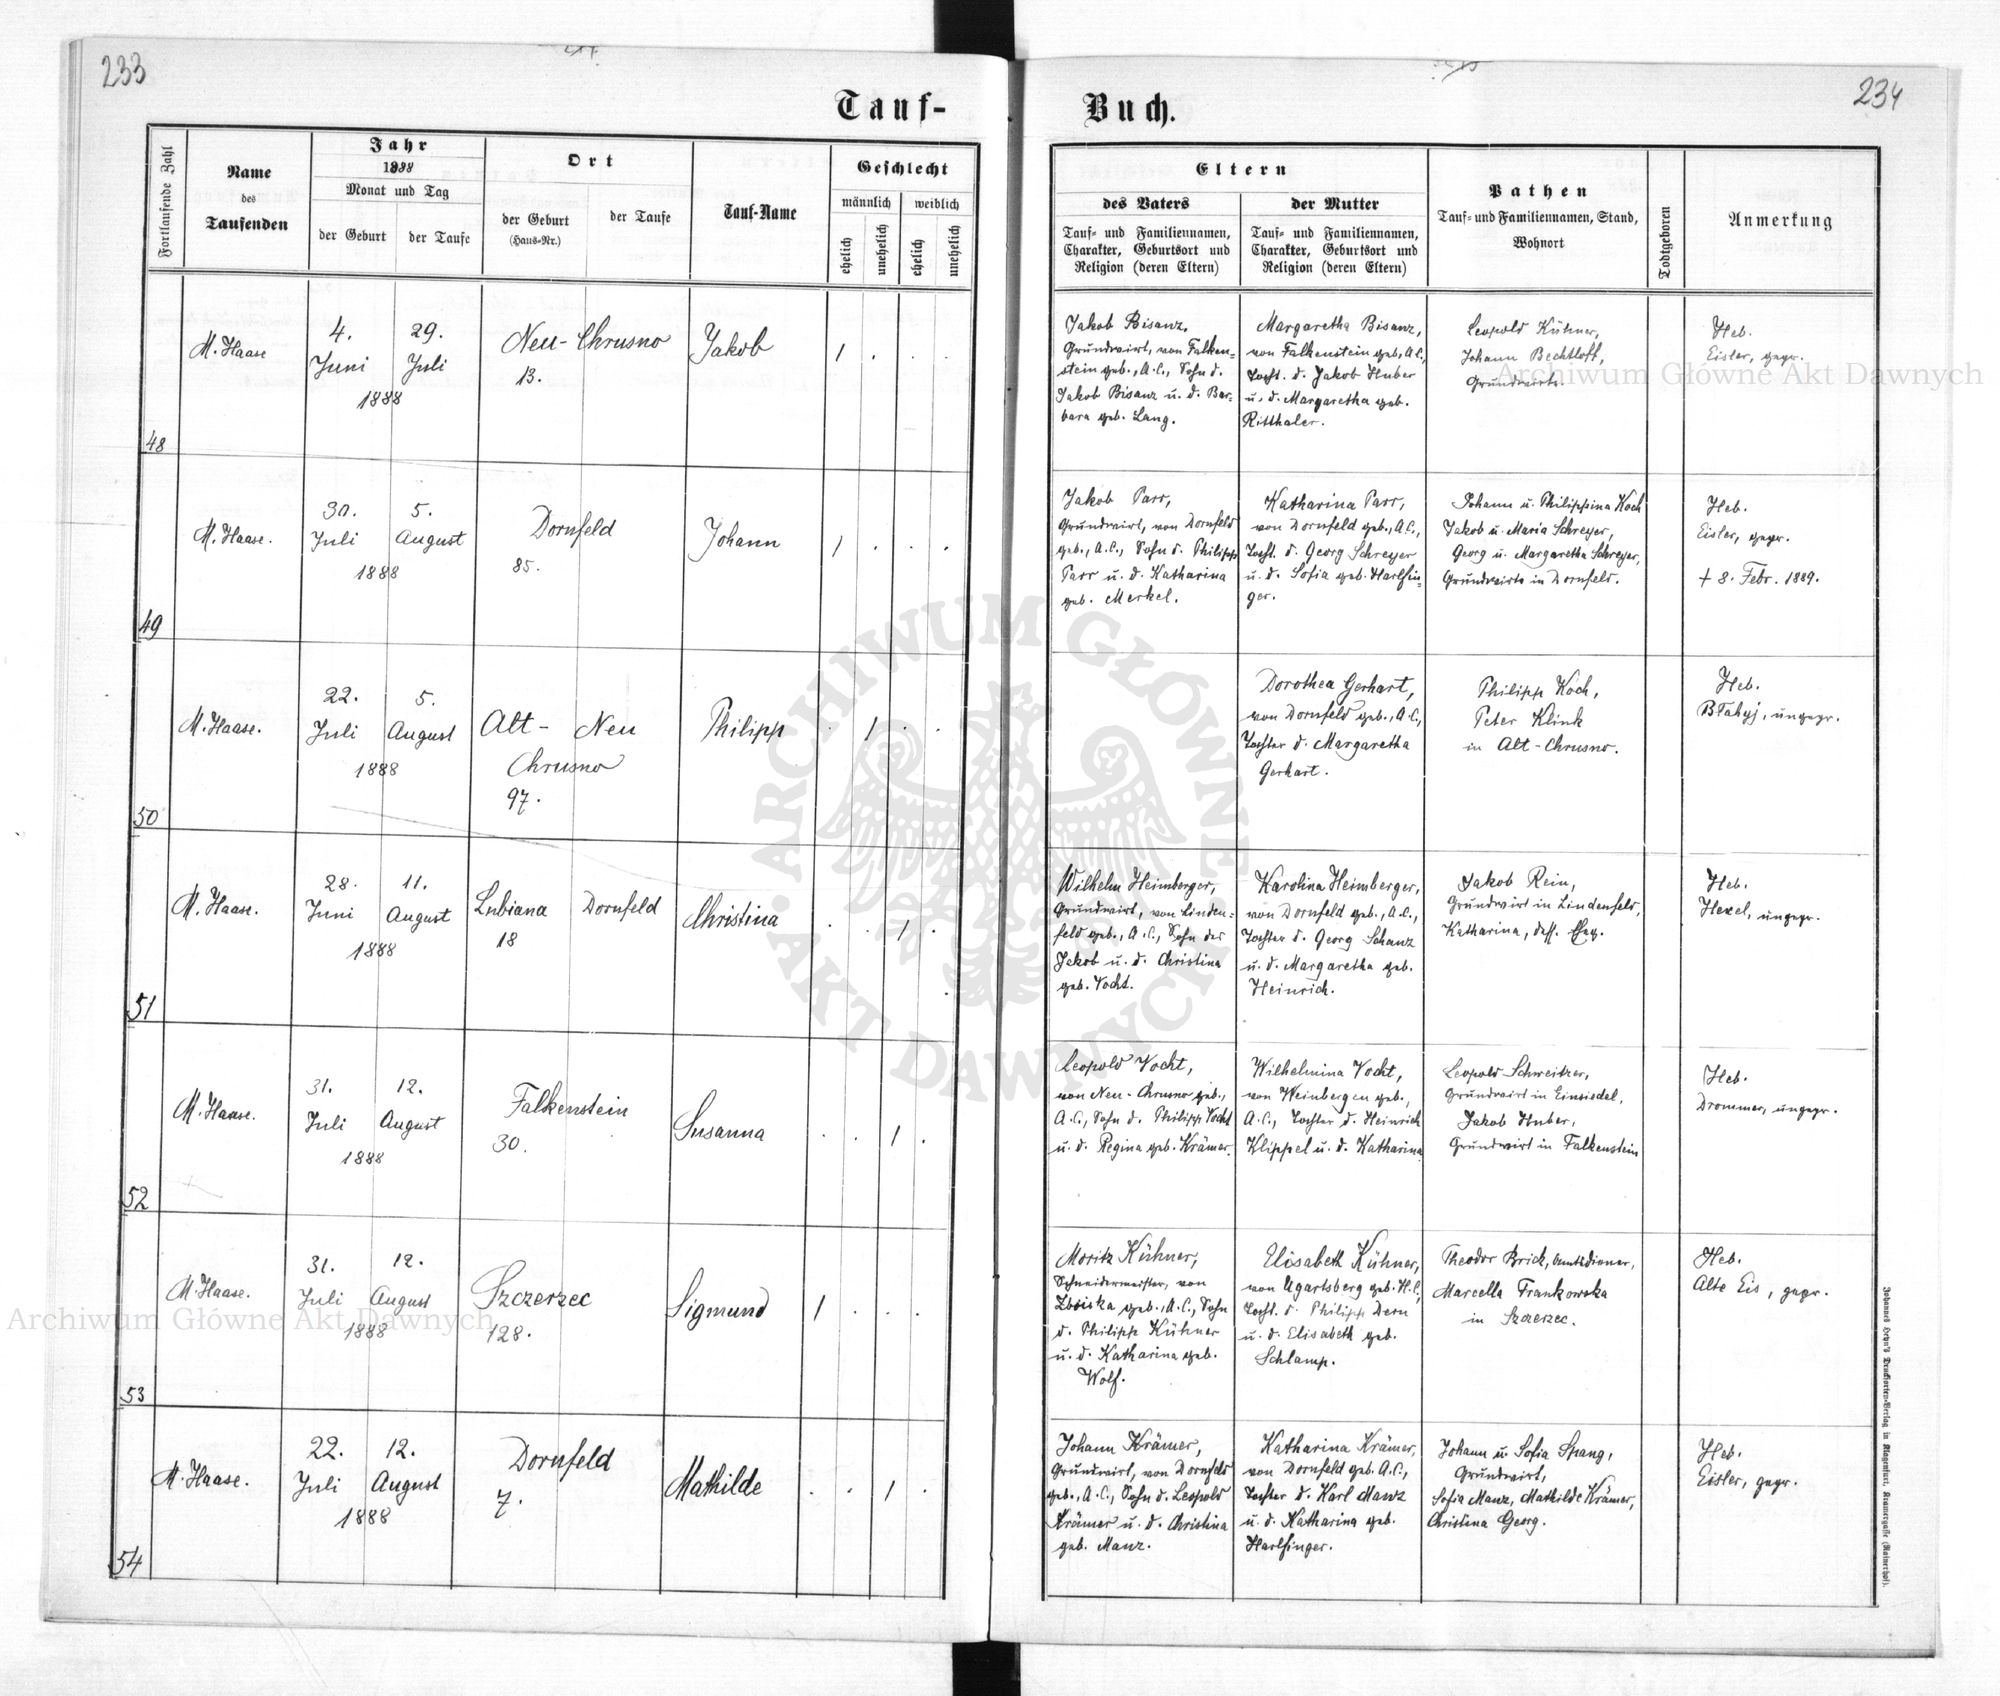 233
Tauf-
Fortlaufende Zahl
Name
des
Taufenden
Jahr
1888
Monat und Tag
der Geburt
der Taufe
Ort
der Geburt
(Haus-Nr.)
der Taufe
Tauf-Name
Geschlecht
männlich
weiblich
ehelich
unehelich
ehelich
unehelich
48
M. Haase
4.
Juni
29.
Juli
1888
Neu-Chrusno
13.
Jakob
1 . . .
49
M. Haase.
30.
Juli
5.
August
1888
Dornfeld
85.
Johann
1 . . .
50
M. Haase.
22.
Juli
5.
August
1888
Alt- Neu
Chrusno
97.
Philipp
. 1 . .
51
M. Haase.
28.
Juni
11.
August
1888
Lubiana
18
Dornfeld
Christina
. . 1 .
52
M. Haase.
31.
Juli
12.
August
1888
Falkenstein
30.
Susanna
. . 1 .
53
M. Haase.
31.
Juli
12.
August
1888
Szczerzec
128.
Sigmund
1 . . .
54
M. Haase.
22.
Juli
12.
August
1888
Dornfeld
7.
Mathilde
. . 1 .
234
Buch.
Eltern
des Vaters
Tauf- und Familiennamen,
Charakter, Geburtsort und
Religion (deren Eltern)
der Mutter
Tauf- und Familiennamen,
Charakter, Geburtsort und
Religion (deren Eltern)
Pathen
Tauf- und Familiennamen, Stand,
Wohnort
Todtgeboren
Anmerkung
Jakob Bisanz,
Grundwirt, von Falken-
stein geb., A.C., Sohn d.
Jakob Bisanz u. d. Bar-
bara geb. Lang.
Margaretha Bisanz,
von Falkenstein geb., A.C.,
Tocht. d. Jakob Huber
u. d. Margaretha geb.
Ritthaler.
Leopold Kühner,
Johann Bechtloff,
Grundwirte.
Heb.
Eisler, gepr.
Jakob Parr,
Grundwirt, von Dornfeld
geb., A.C., Sohn d. Philipp
Parr u. d. Katharina
geb. Merkel.
Katharina Parr,
von Dornfeld geb., A.C.,
Tocht. d. Georg Schreyer
u. d. Sofia geb. Harlfin-
ger.
Johann u. Philippina Koch
Jakob u. Maria Schreyer,
Georg u. Margaretha Schreyer,
Grundwirte in Dornfeld.
Heb.
Eisler, gepr.
† 8. Febr. 1889.
Dorothea Gerhart,
von Dornfeld geb., A.C.,
Tochter d. Margaretha
Gerhart.
Philipp Koch,
Peter Klink
in Alt-Chrusno.
Heb.
Błahyj, ungepr.
Wilhelm Heimberger,
Grundwirt, von Linden-
feld geb., A.C., Sohn des
Jakob u. d. Christina
geb. Vocht.
Karolina Heimberger,
von Dornfeld geb., A.C.,
Tochter d. Georg Schanz
u. d. Margaretha geb.
Heinrich.
Jakob Rein,
Grundwirt in Lindenfeld,
Katharina, dess. Eheg.
Heb.
Hexel, ungepr.
Leopold Vocht,
von Neu-Chrusno geb.,
A.C., Sohn d. Philipp Vocht
u. d. Regina geb. Krämer.
Wilhelmina Vocht,
von Weinbergen geb.,
A.C., Tochter d. Heinrich
Klippel u. d. Katharina
Leopold Schweitzer,
Grundwirt in Einsiedel,
Jakob Huber,
Grundwirt in Falkenstein
Heb.
Drommer, ungepr.
Moritz Kühner,
Schneidermeister, von
Zboiska geb., A.C., Sohn
d. Philipp Kühner
u. d. Katharina geb.
Wolf.
Elisabeth Kühner,
von Ugartsberg geb. H.C.,
Tocht. d. Philipp Dern
u. d. Elisabeth geb.
Schlamp.
Theodor Brick, Amtsdiener,
Marcella Frankowska
in Szczerzec.
Heb.
Alte Eis, gepr.
Johann Krämer,
Grundwirt, von Dornfeld
geb., A.C., Sohn d. Leopold
Krämer u. d. Christina
geb. Manz.
Katharina Krämer,
von Dornfeld geb. A.C.,
Tochter d. Karl Manz
u. d. Katharina geb.
Harlfinger.
Johann u. Sofia Spang,
Grundwirt,
Sofia Manz, Mathilde Krämer,
Christina Georg.
Heb.
Eisler, gepr.
Johannes Heyn's Drucksorten-Verlag in Klagenfurt, Kramergasse (Rainerhof).
Archiwum Główne Akt Dawnych
Archiwum Główne Akt Dawnych
ARCHIWUM GŁÓWNE
AKT DAWNYCH